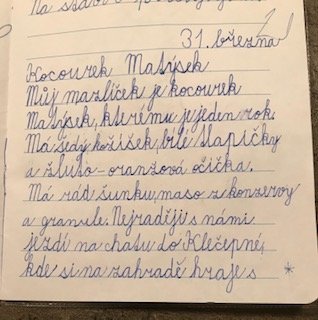 31. března
Kocourek Matýsek
Můj mazlíček je kocourek
Matýsek, kterému je jeden rok.
Má šedý kožíšek, bílé tlapičky
a žluto-oranžová očička.
Má rád šunku, maso z konzervy
a granule. Nejraději s námi
jezdí na chatu do Klečepné,
kde si na zahradě hraje s *